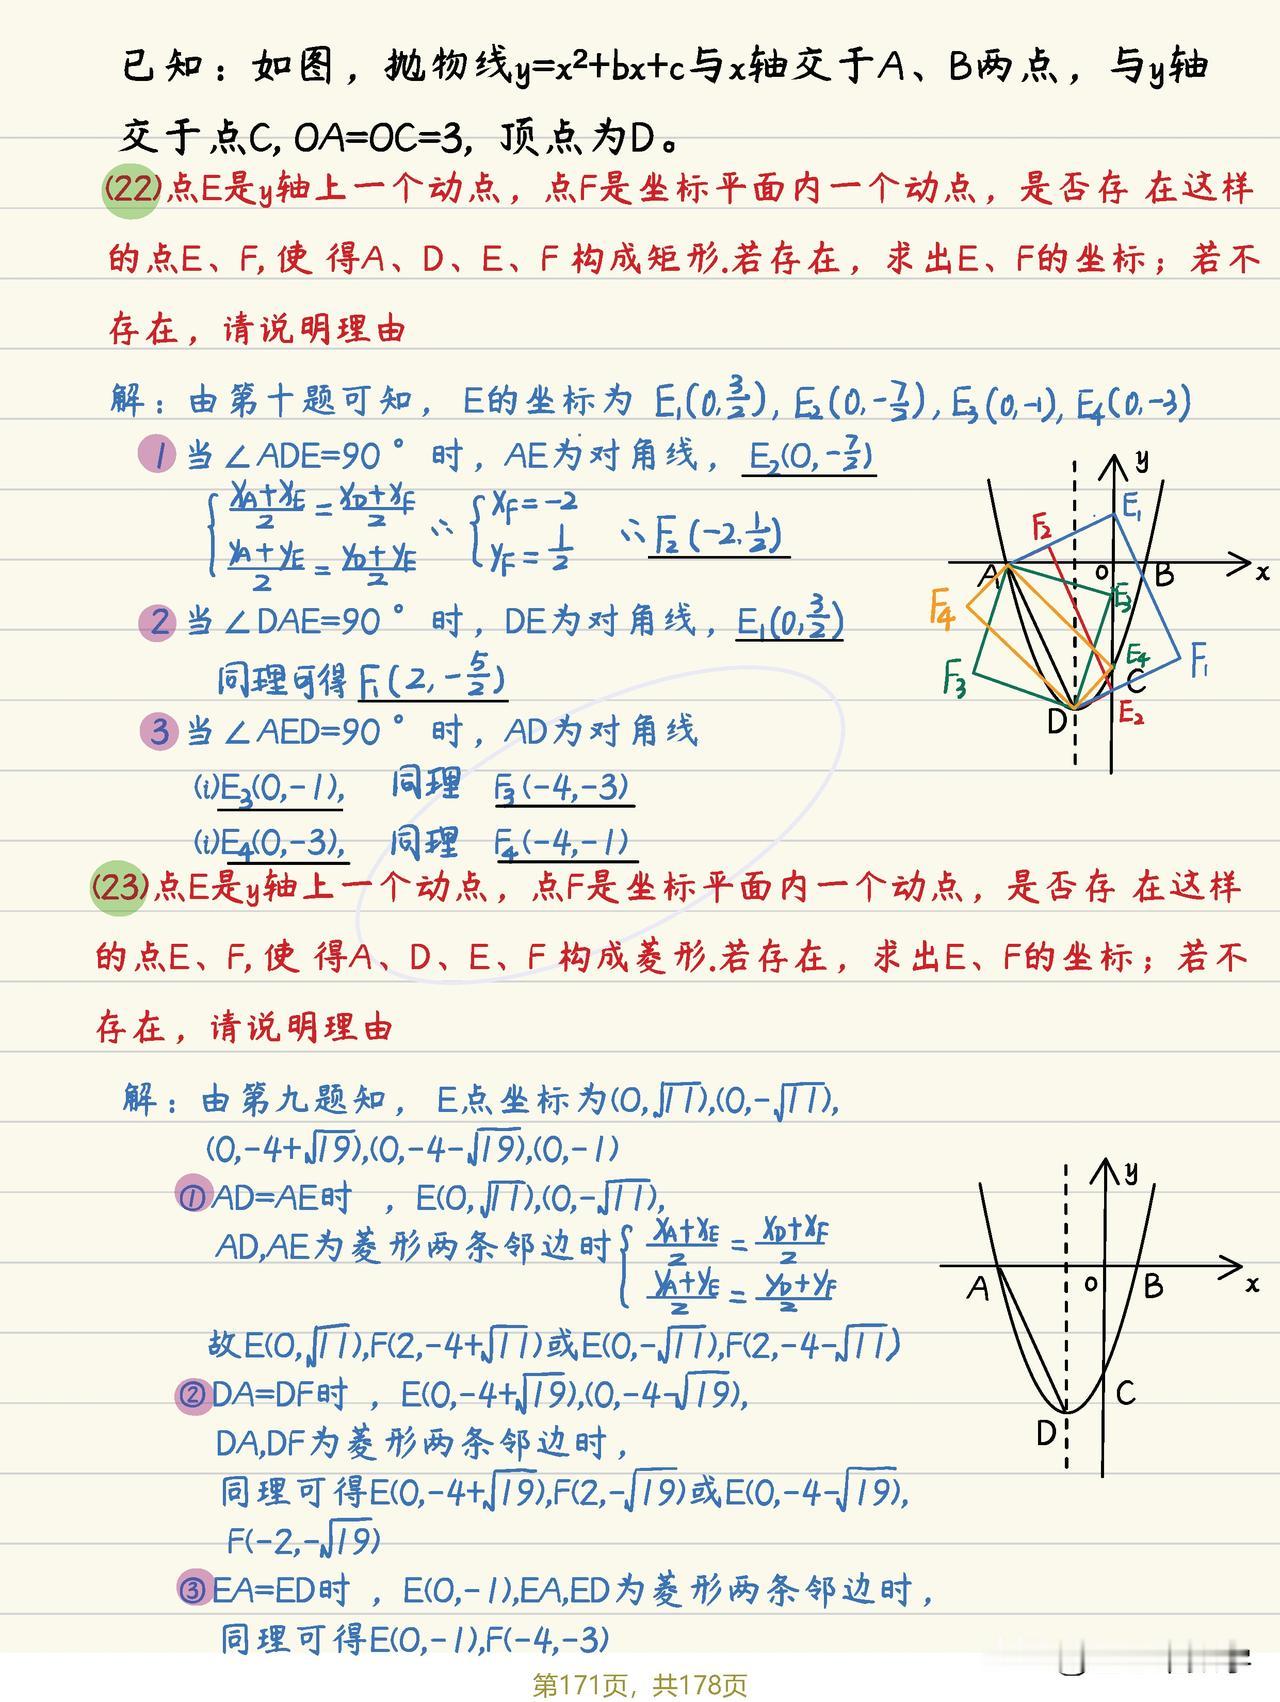 已知：如图，抛物线y=x²+bx+c与x轴交于A、B两点，与y轴
交于点C, OA=OC=3, 顶点为D。
(22)点E是y轴上一个动点，点F是坐标平面内一个动点，是否存 在这样
的点E、F, 使 得A、D、E、F 构成矩形.若存在，求出E、F的坐标；若不
存在，请说明理由
解：由第十题可知，E的坐标为 E₁(0,3/2), E₂(0,-7/2), E₃(0,-1), E₄(0,-3)
1 当∠ADE=90°时，AE为对角线，E₂(0,-7/2)
{ (x_A+x_E)/2 = (x_D+x_F)/2 ∴ { x_F=-2 ∴F₂(-2,1/2)
(y_A+y_E)/2 = (y_D+y_F)/2 y_F=1/2
2 当∠DAE=90°时，DE为对角线，E₁(0,3/2)
同理可得 F₁(2,-5/2)
3 当∠AED=90°时，AD为对角线
(i)E₃(0,-1), 同理 F₃(-4,-3)
(i)E₄(0,-3), 同理 F₄(-4,-1)
y
E₁
F₂
A
O
B
x
F₄
E₃
F₃
E₄
F₁
C
D
E₂
(23)点E是y轴上一个动点，点F是坐标平面内一个动点，是否存 在这样
的点E、F, 使 得A、D、E、F 构成菱形.若存在，求出E、F的坐标；若不
存在，请说明理由
解：由第九题知，E点坐标为(0,√11),(0,-√11),
(0,-4+√19),(0,-4-√19),(0,-1)
①AD=AE时 ，E(0,√11),(0,-√11),
AD,AE为菱形两条邻边时{ (x_A+x_E)/2 = (x_D+x_F)/2
(y_A+y_E)/2 = (y_D+y_F)/2
故E(0,√11),F(2,-4+√11)或E(0,-√11),F(2,-4-√11)
②DA=DF时 ，E(0,-4+√19),(0,-4-√19),
DA,DF为菱形两条邻边时，
同理可得E(0,-4+√19),F(2,-√19)或E(0,-4-√19),
F(-2,-√19)
③EA=ED时 ，E(0,-1),EA,ED为菱形两条邻边时，
同理可得E(0,-1),F(-4,-3)
y
A
O
B
x
C
D
第171页，共178页